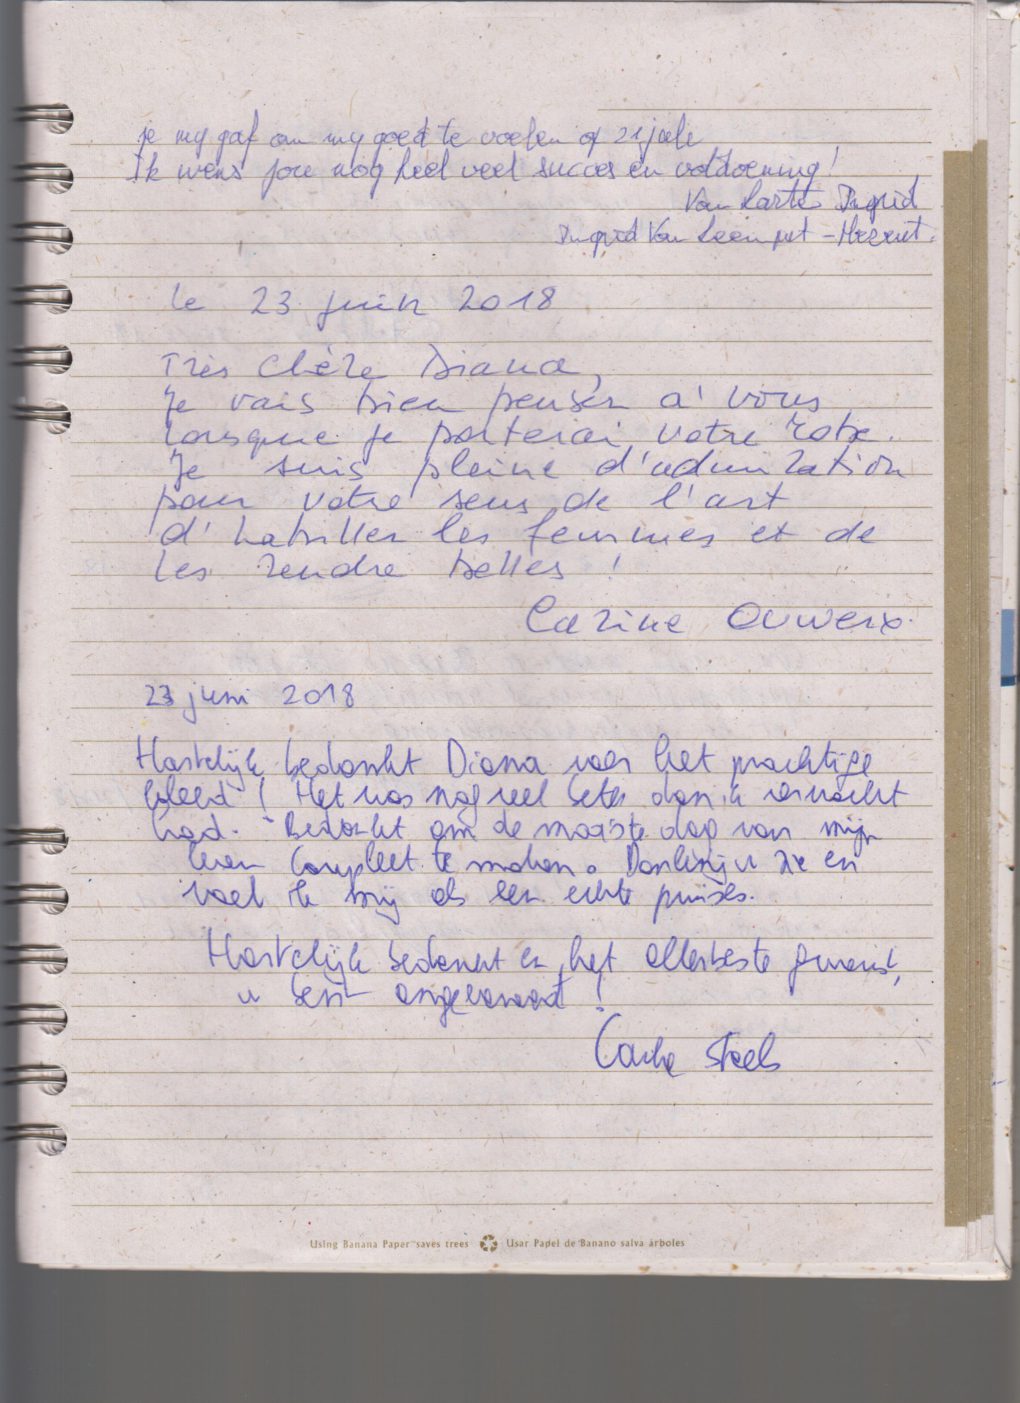 je my gaf om my goed te voelen op 21 jule
Ik wens jou nog heel veel succes en voldoening!
Van harte Ingrid
Ingrid Van
le 23 juin 2018
Très chère Diana,
Je vais bien penser à vous
lorsque je porterai votre robe.
Je suis pleine d'admiration
pour votre sens de l'art
d'habiller les femmes et de
les rendre belles !
Carine Ouwerx.
23 juni 2018
Hartelijk bedankt Diana voor het prachtige
kleed ! Het was nog veel beter dan ik verwacht
had. Bedankt om de mooiste dag van mijn
leven compleet te maken. Dankzij u zie en
voel ik mij als een echte prinses.
Hartelijk bedankt en het allerbeste gewenst,
u bent
Steels
Using Banana Paper saves trees Usar Papel de Banano salva árboles